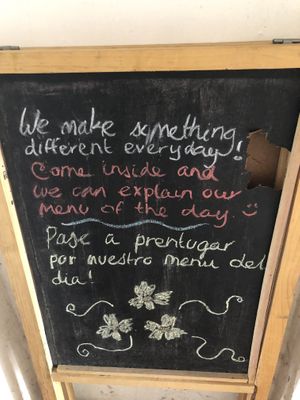 We make something
different everyday!
Come inside and
we can explain our
menu of the day. :)
Pase a prentugar
por nuestro menu del
dia!